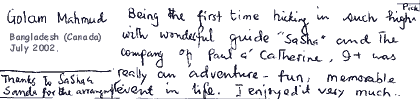 Pick
Golam Mahmud
Bangladesh (Canada)
July 2002.
Being the first time hiking in such high
with wonderful guide "SaSha" and The
company of Paul & Catherine, It was
really an adventure - fun, memorable
event in life. I enjoyed very much..
Thanks to SaSha &
Sands for the arrangement